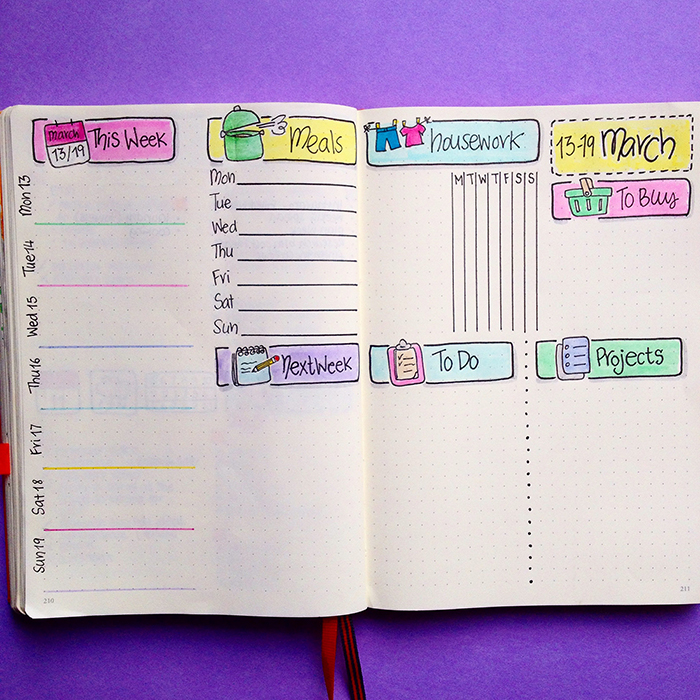 March
13/19
This Week
Mon 13
Tue 14
Wed 15
Thu 16
Fri 17
Sat 18
Sun 19
210
Meals
Mon
Tue
Wed
Thu
Fri
Sat
Sun
Next Week
housework
M T W T F S S
13-19 March
To Buy
To Do
Projects
211